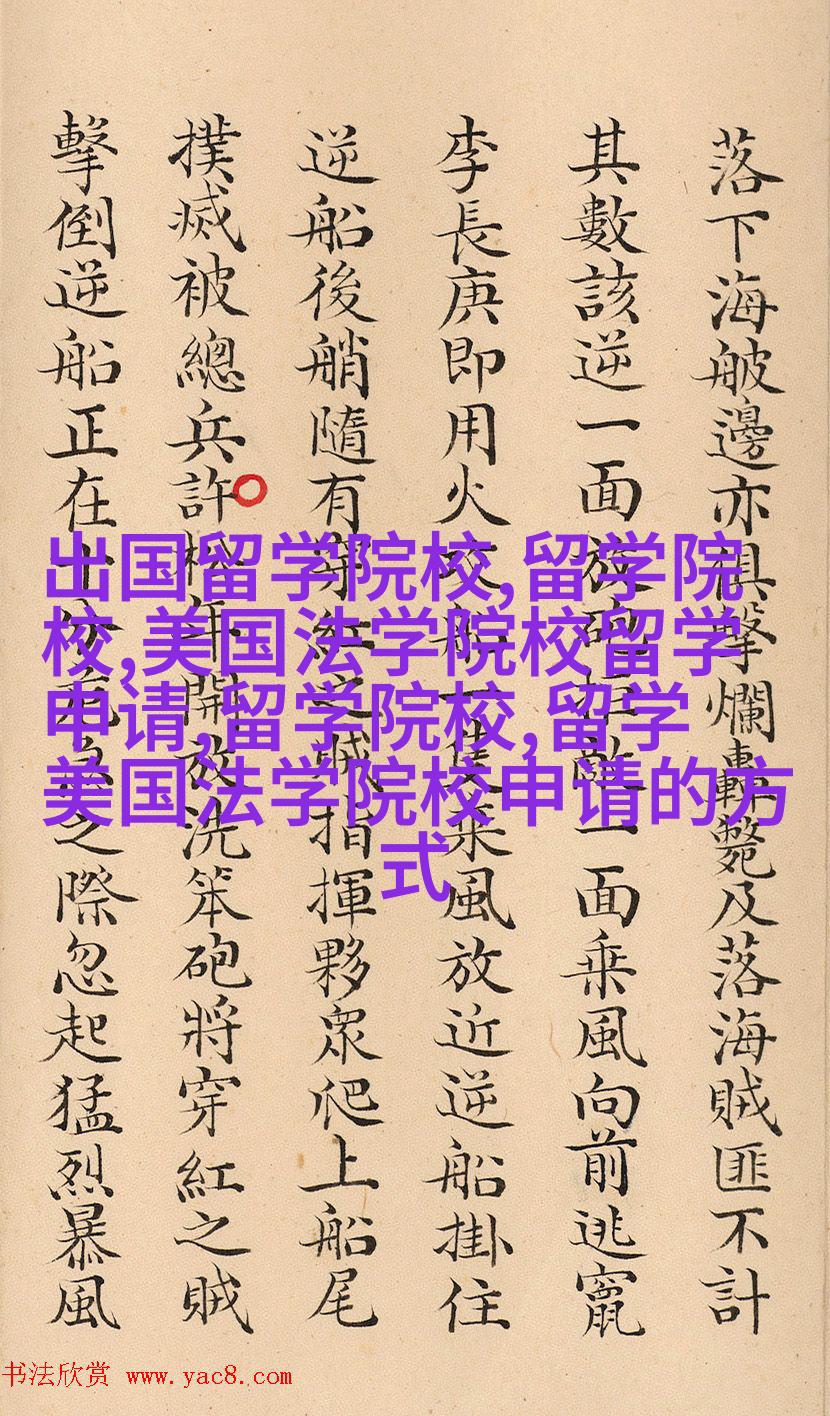 落下海舨邊亦俱擊爛轟斃及落海賊匪不計
其數該逆一面放砲拒敵一面乗風向前逃竄
李長庚即用火攻船一隻乗風放近逆船掛住
逆船後艄隨有穿紅之賊指揮夥衆爬上船尾
撲滅被總兵許松年開放洗笨砲將穿紅之賊
擊倒逆船正在十分危急之際忽起猛烈暴風
出国留学院校,留学院
校,美国法学院校留学
申请,留学院校,留学
美国法学院校申请的方
式
书法欣赏 www.yac8.com